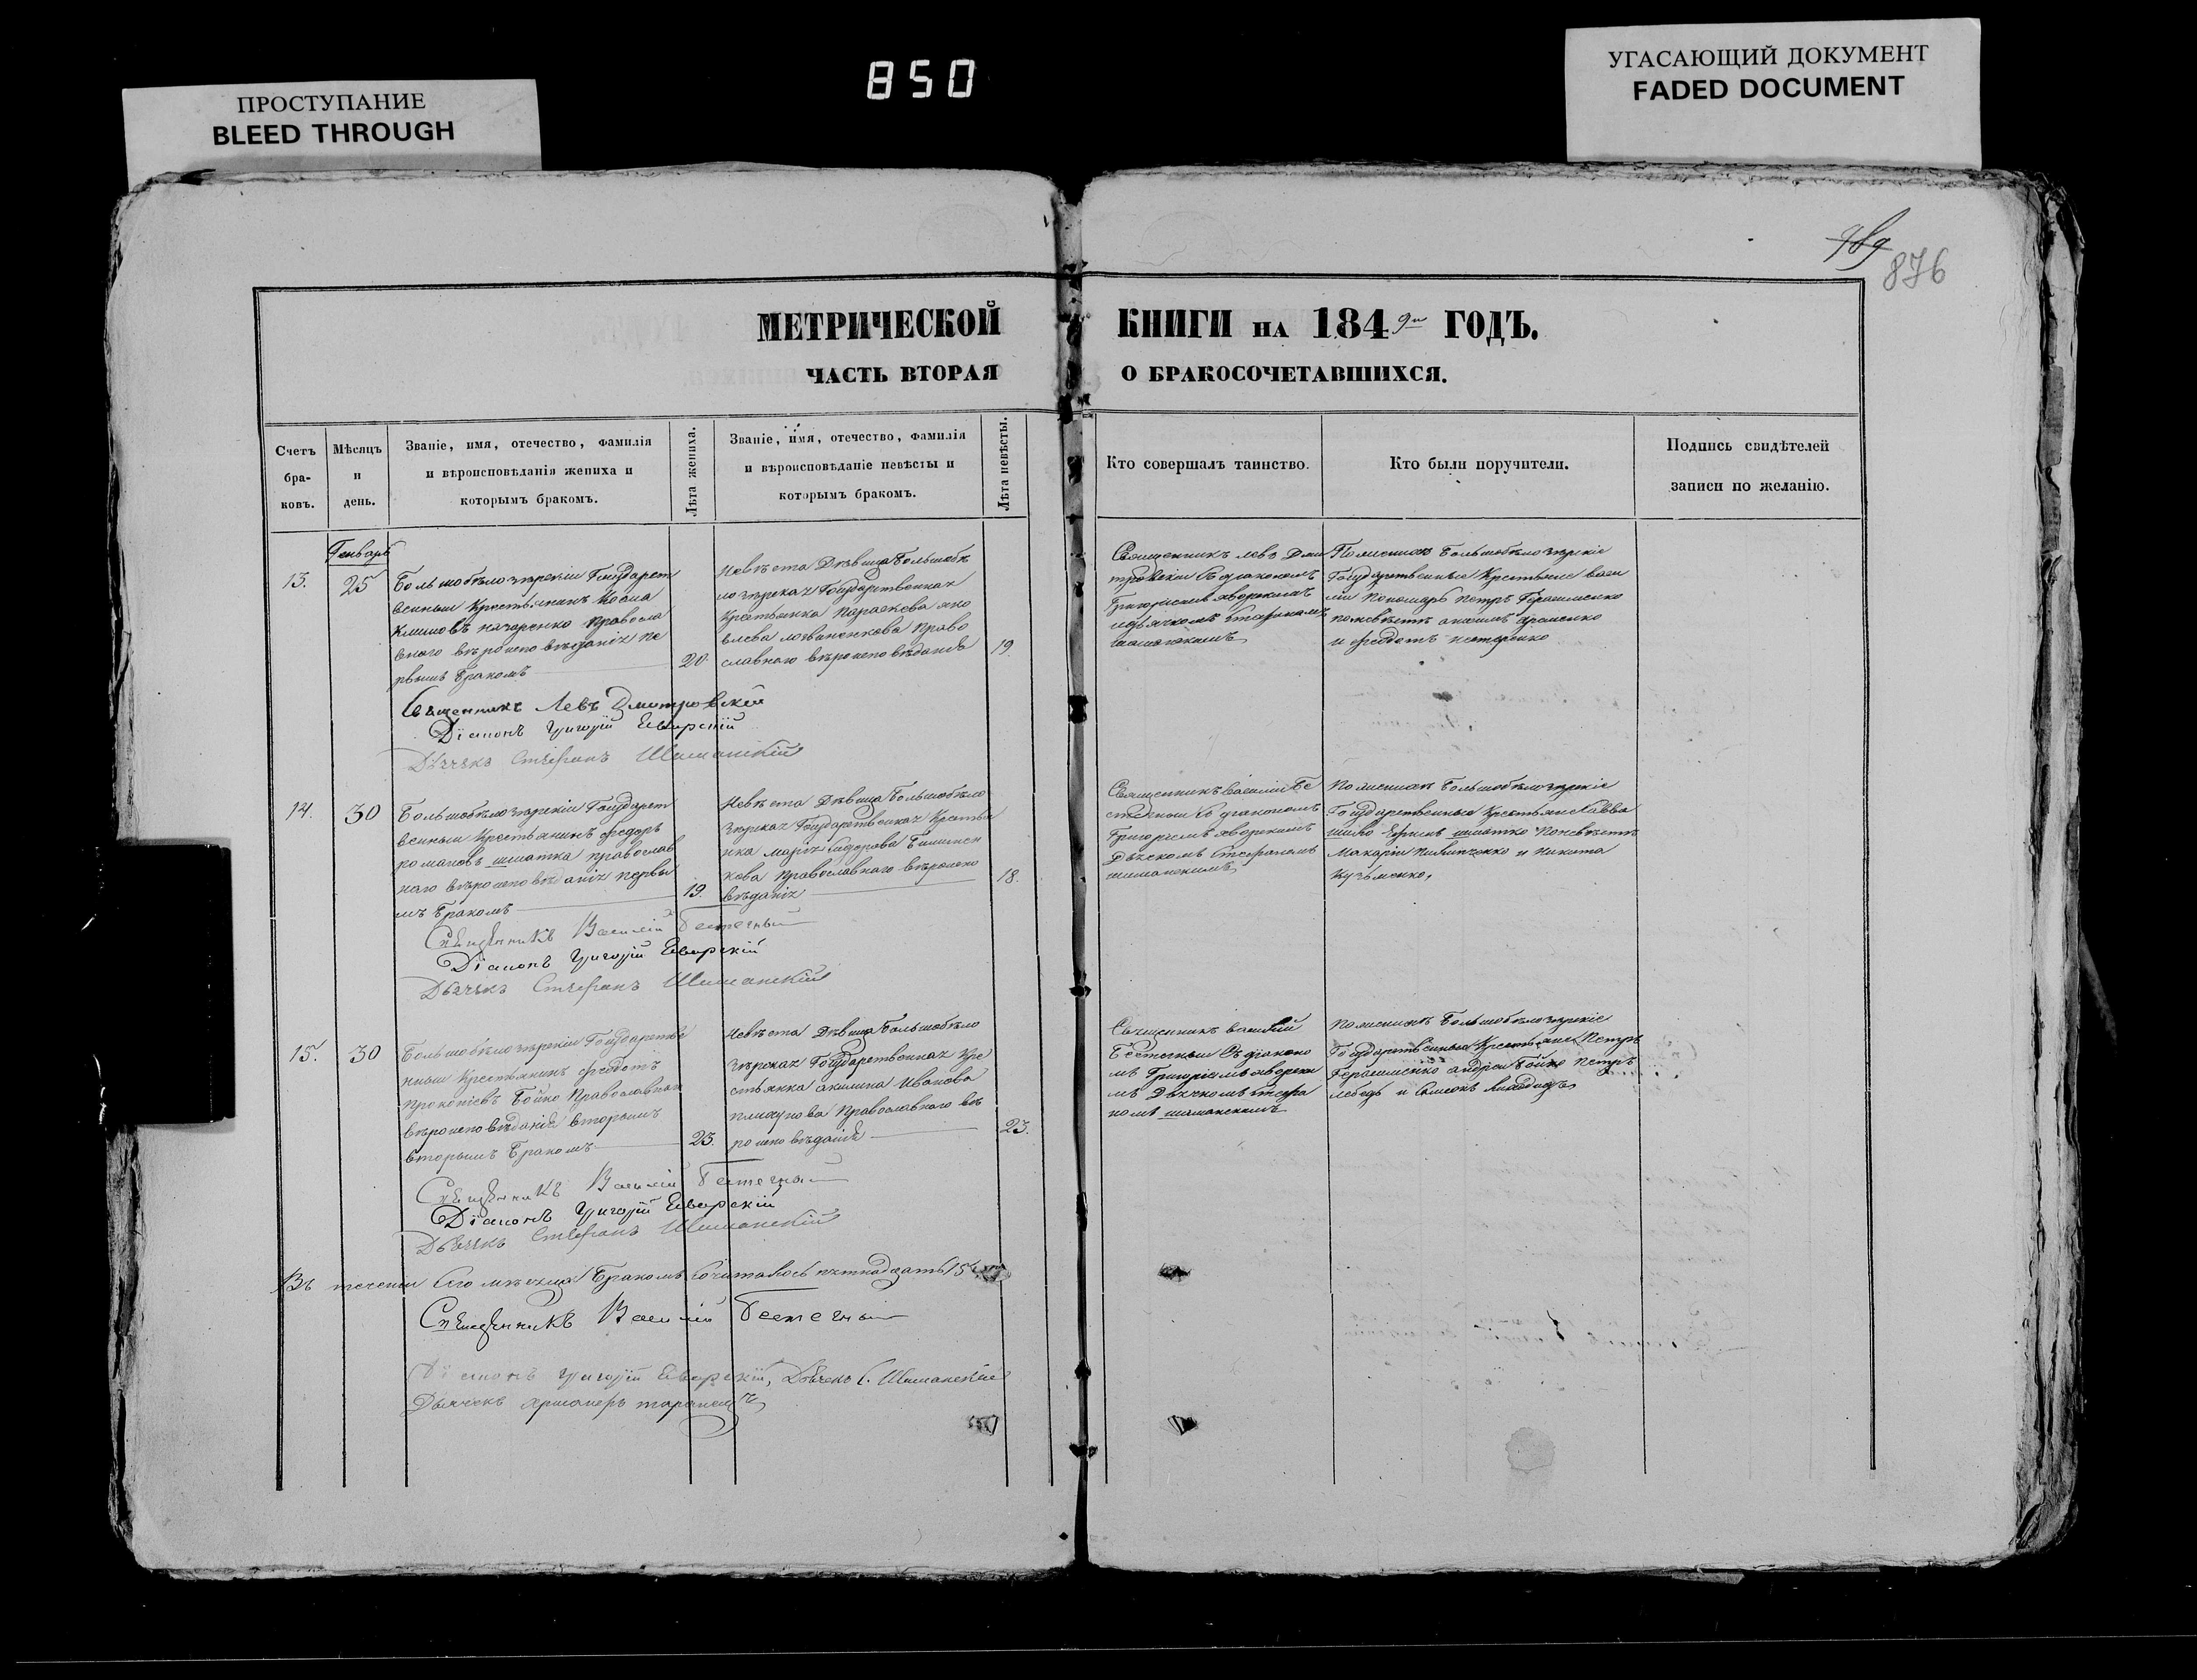 850
ПРОСТУПАНИЕ
BLEED THROUGH
УГАСАЮЩИЙ ДОКУМЕНТ
FADED DOCUMENT
989
876
МЕТРИЧЕСКОЙ КНИГИ НА 1849 ГОДЪ.
ЧАСТЬ ВТОРАЯ О БРАКОСОЧЕТАВШИХСЯ.
Счетъ
бра-
ковъ.
Мѣсяцъ
и
день.
Званіе, имя, отечество, фамилія
и вѣроисповѣданія жениха и
которымъ бракомъ.
Лѣта жениха.
Званіе, имя, отечество, фамилія
и вѣроисповѣданіе невѣсты и
которымъ бракомъ.
Лѣта невѣсты.
Кто совершалъ таинство.
Кто были поручители.
Подпись свидѣтелей
записи по желанію.
Генварь
13.
25
Большобѣлозерскіи Государст
венныи Крестьянинъ Козма
Климовъ назаренко Правосла
внаго вѣроисповѣданія пе
рвымъ бракомъ
20.
Невѣста Дѣвица Большобѣ
лозерская Государственная
Крестьянка Параскева яко
влева Право
славнаго вѣроисповѣданія
19.
Священникъ левъ Дми
тровскіи съ діакономъ
Григоріемъ яворскимъ
и дьячкомъ Стефаномъ
шиманскимъ
По женихѣ Большобѣлозерскіе
Государственные Крестьяне васи
лій Пономарь Петръ Герасименко
по невѣстѣ
и федотъ нестеренко
Священникъ Левъ Дмитровскій
Діаконъ Григорій Яворскій
Дьячекъ Стефанъ Шиманскій
14.
30
Большобѣлозерскіи Государст
венныи Крестьянинъ федоръ
романовъ шматка православ
наго вѣроисповѣданія первы
мъ бракомъ
19.
Невѣста Дѣвица Большобѣло
зерская Государственная Крестья
нка марія Сидорова
кова Православнаго вѣроиспо
вѣданія
18.
Священникъ василій Бе
стечныи съ діакономъ
Григоріемъ яворскимъ
Дьячкомъ Стефаномъ
шиманскимъ
По женихѣ Большобѣлозерскіе
Государственные Крестьяне Савва
шматко по невѣстѣ
Макаріи Пилипченко и Никита
Кузьменко,
Священникъ Василій Бестечный
Діаконъ Григорій Яворскій
Дьячекъ Стефанъ Шиманскій
15.
30
Большобѣлозерскіи Государстве
нныи Крестьянинъ федотъ
прокопіевъ Бойко Православнаго
вѣроисповѣданія вторымъ
вторымъ бракомъ
23.
Невѣста Дѣвица Большобѣло
зерская Государственная Кре
стьянка акилина Иванова
Православнаго вѣ
роисповѣданія
23.
Священникъ василій
Бестечныи съ діаконо
мъ Григоріемъ яворски
мъ Дьячкомъ стефа
номъ шиманскимъ
По женихѣ Большобѣлозерскіе
Государственные Крестьяне Петръ
Герасименко андреи Бойко Петръ
лебедь и Симеонъ
Священникъ Василій Бестечный
Діаконъ Григорій Яворскій
Дьячекъ Стефанъ Шиманскій
Въ теченіи сего мѣсяца Бракомъ сочиталось пятнадцать 15
Священникъ Василій Бестечный
Діаконъ Григорій Яворскій, Дьячекъ С. Шиманскій
Дьячекъ